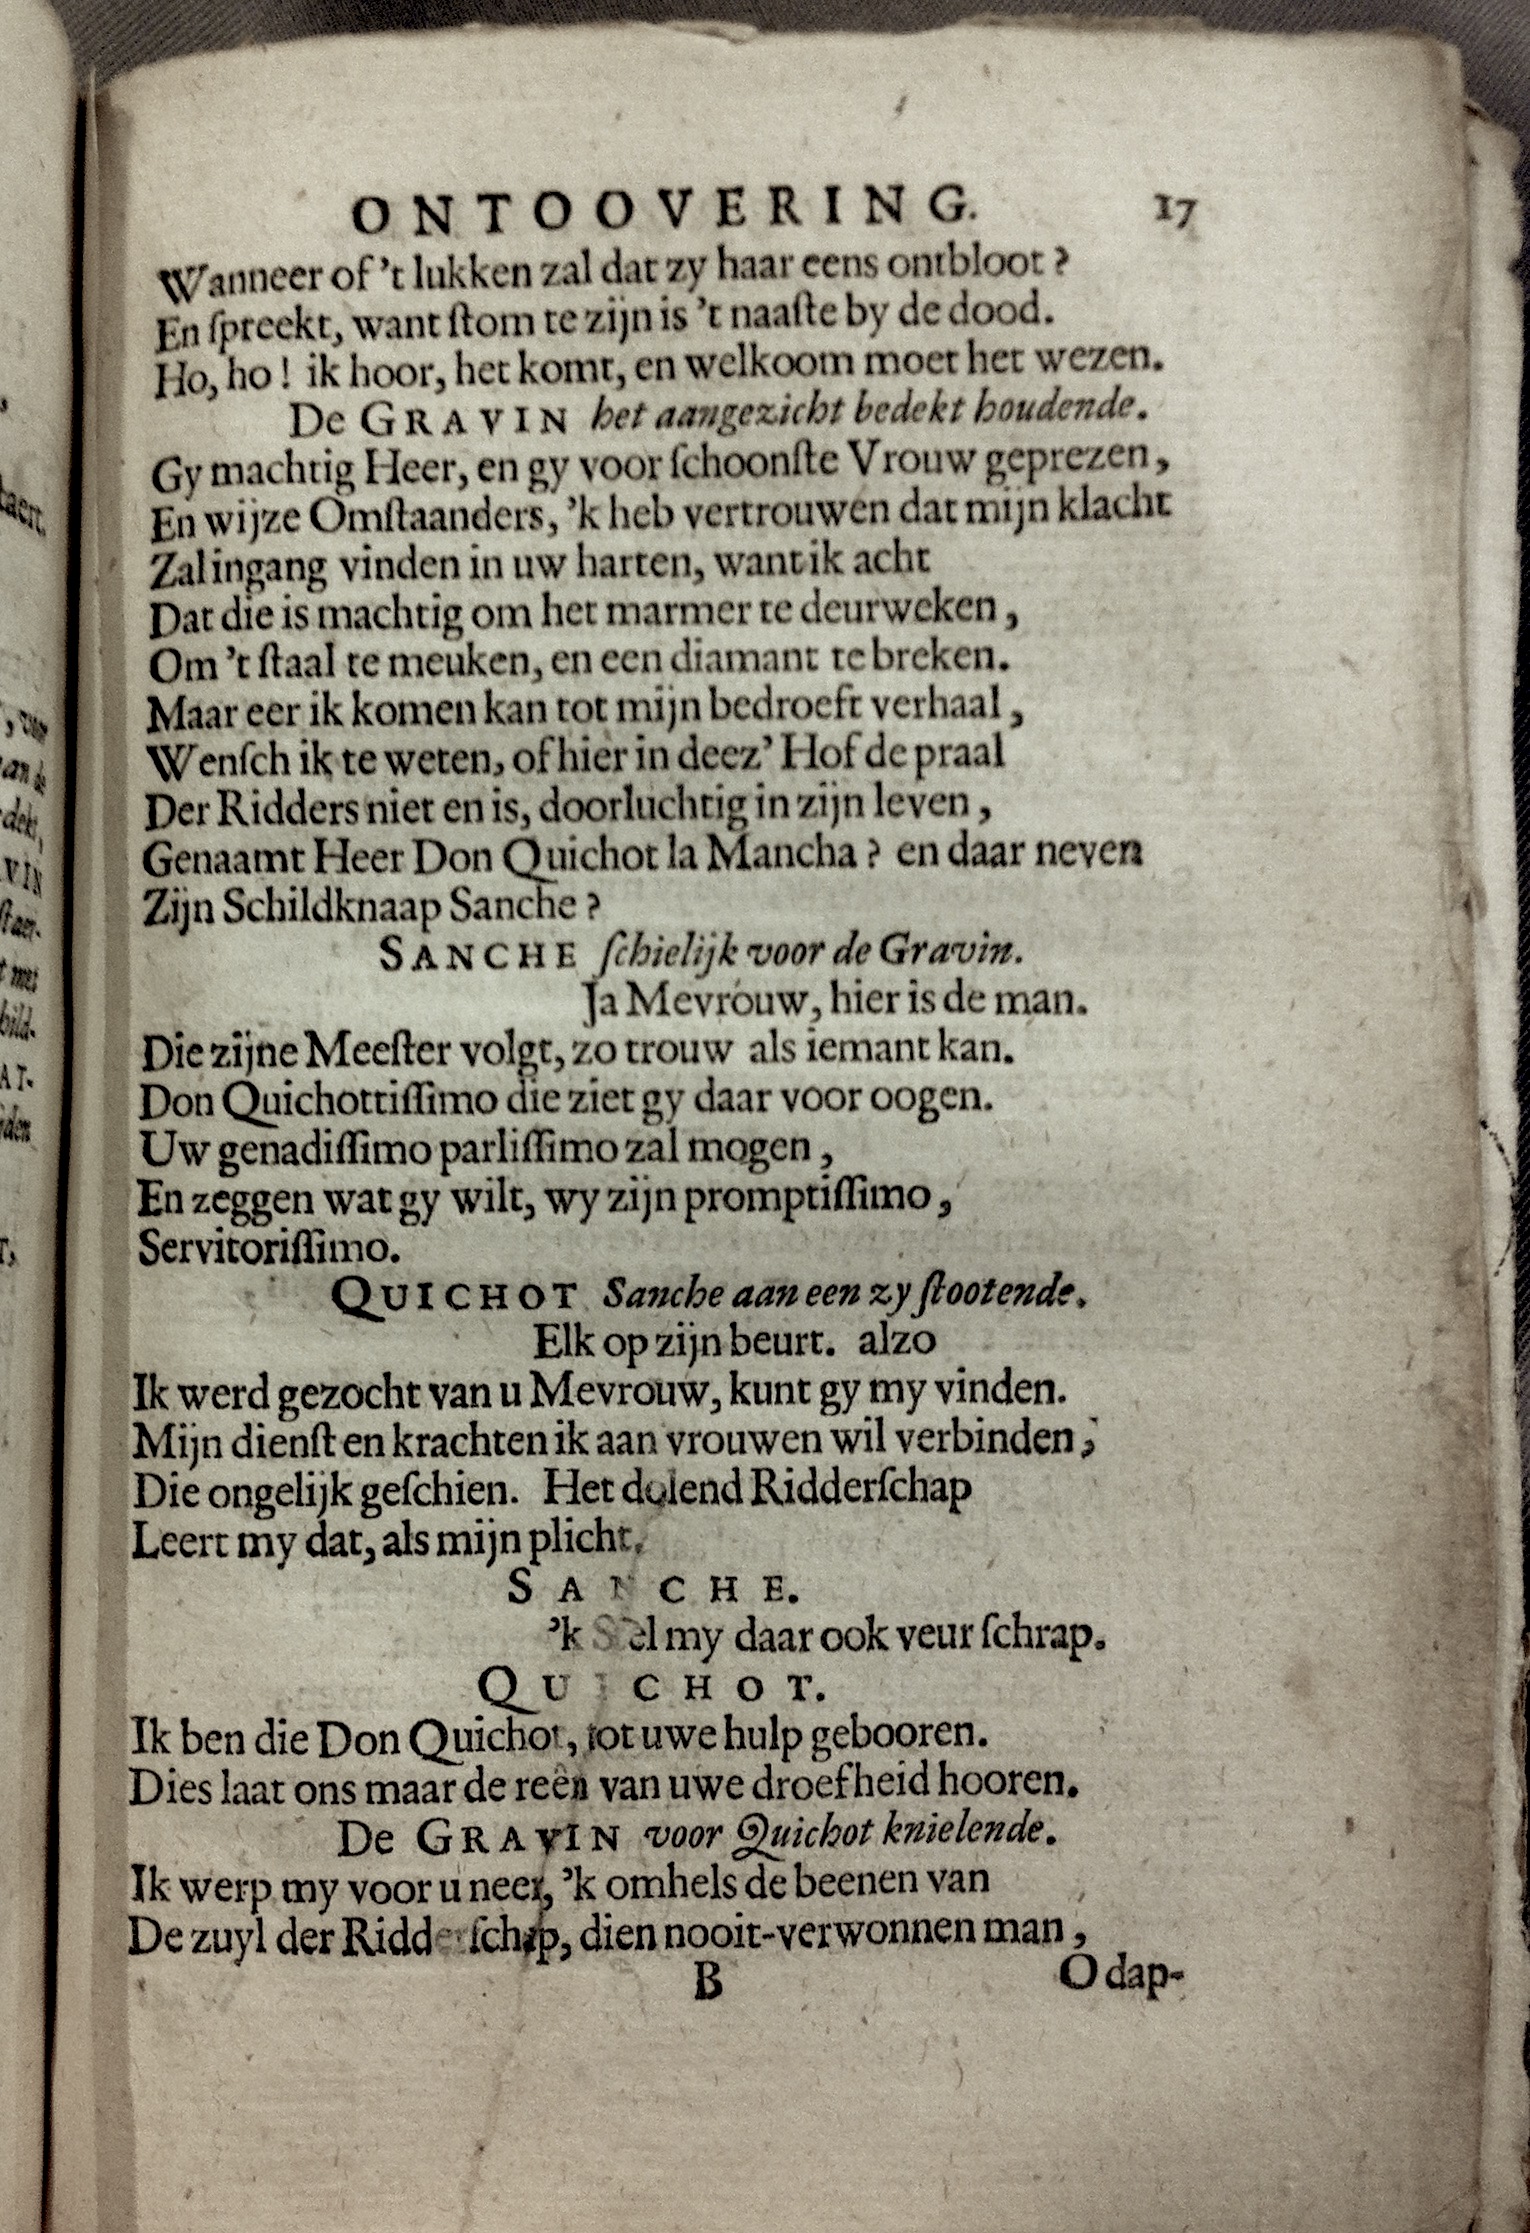 ONTOOVERING. 17
Wanneer of 't lukken zal dat zy haar eens ontbloot?
En ſpreekt, want ſtom te zijn is 't naaſte by de dood.
Ho, ho! ik hoor, het komt, en welkoom moet het wezen.
De GRAVIN het aangezicht bedekt houdende.
Gy machtig Heer, en gy voor ſchoonſte Vrouw geprezen,
En wijze Omſtaanders, 'k heb vertrouwen dat mijn klacht
Zal ingang vinden in uw harten, want ik acht
Dat die is machtig om het marmer te deurweken,
Om 't ſtaal te meuken, en een diamant te breken.
Maar eer ik komen kan tot mijn bedroeft verhaal,
Wenſch ik te weten, of hier in deez' Hof de praal
Der Ridders niet en is, doorluchtig in zijn leven,
Genaamt Heer Don Quichot la Mancha? en daar neven
Zijn Schildknaap Sanche?
SANCHE ſchielijk voor de Gravin.
Ja Mevrouw, hier is de man.
Die zijne Meeſter volgt, zo trouw als iemant kan.
Don Quichottiſſimo die ziet gy daar voor oogen.
Uw genadiſſimo parliſſimo zal mogen,
En zeggen wat gy wilt, wy zijn promptiſſimo,
Servitoriſſimo.
QUICHOT Sanche aan een zy ſtootende.
Elk op zijn beurt. alzo
Ik werd gezocht van u Mevrouw, kunt gy my vinden.
Mijn dienſt en krachten ik aan vrouwen wil verbinden;
Die ongelijk geſchien. Het dolend Ridderſchap
Leert my dat, als mijn plicht.
SANCHE.
'k Stel my daar ook veur ſchrap.
QUICHOT.
Ik ben die Don Quichot, tot uwe hulp gebooren.
Dies laat ons maar de reên van uwe droefheid hooren.
De GRAVIN voor Quichot knielende.
Ik werp my voor u neer, 'k omhels de beenen van
De zuyl der Ridderſchap, dien nooit-verwonnen man,
B O dap-